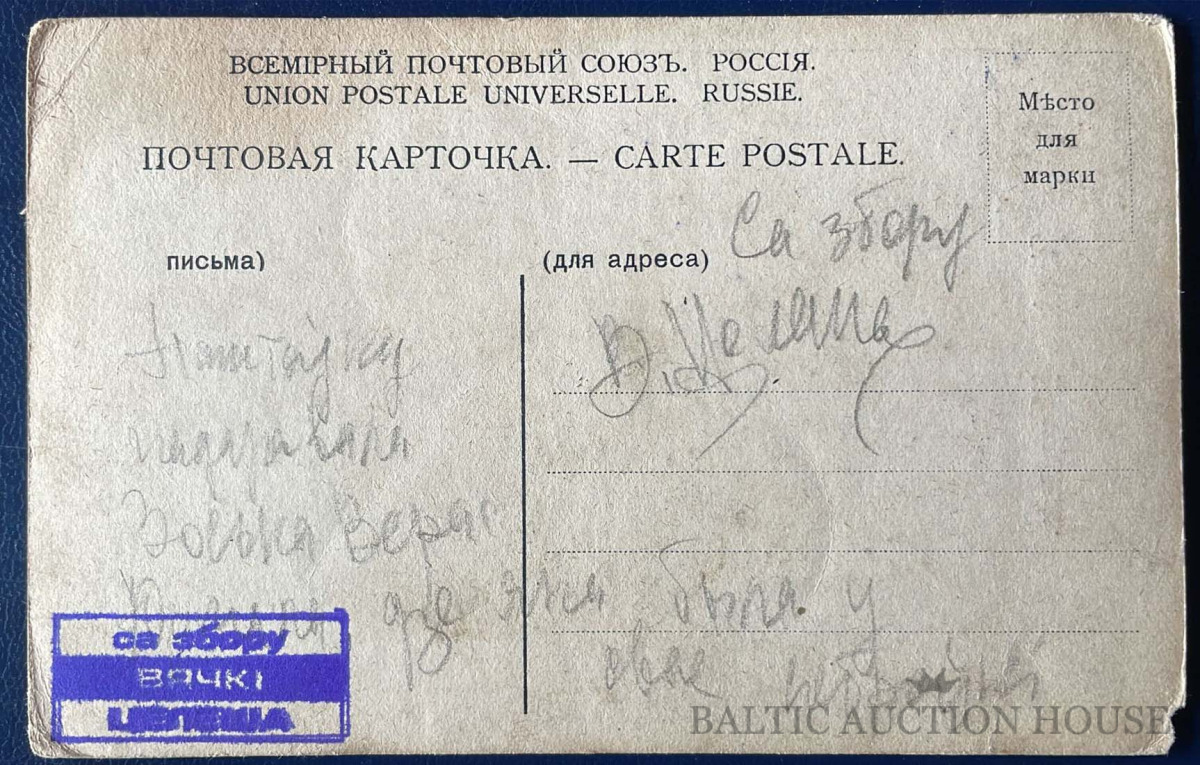 ВСЕМІРНЫЙ ПОЧТОВЫЙ СОЮЗЪ. РОССІЯ.
UNION POSTALE UNIVERSELLE. RUSSIE.
ПОЧТОВАЯ КАРТОЧКА. — CARTE POSTALE.
Мѣсто
для
марки
письма)
(для адреса)
Са збору
В. Целеша
Паштоўку
падаравала
Зоська Верас
дзе яна была у
са збору
ВЯЧКІ
ЦЕЛЕША
BALTIC AUCTION HOUSE